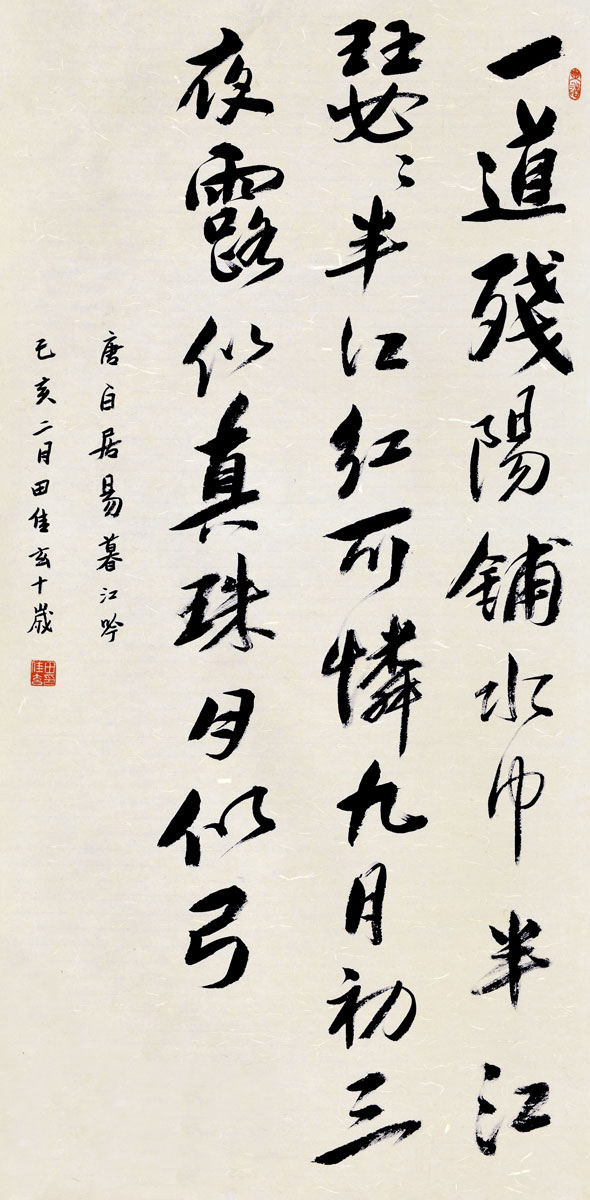 一道殘陽鋪水中半江
瑟〻半江紅可憐九月初三
夜露似真珠月似弓
唐白居易暮江吟
己亥二月田佳玄十歲